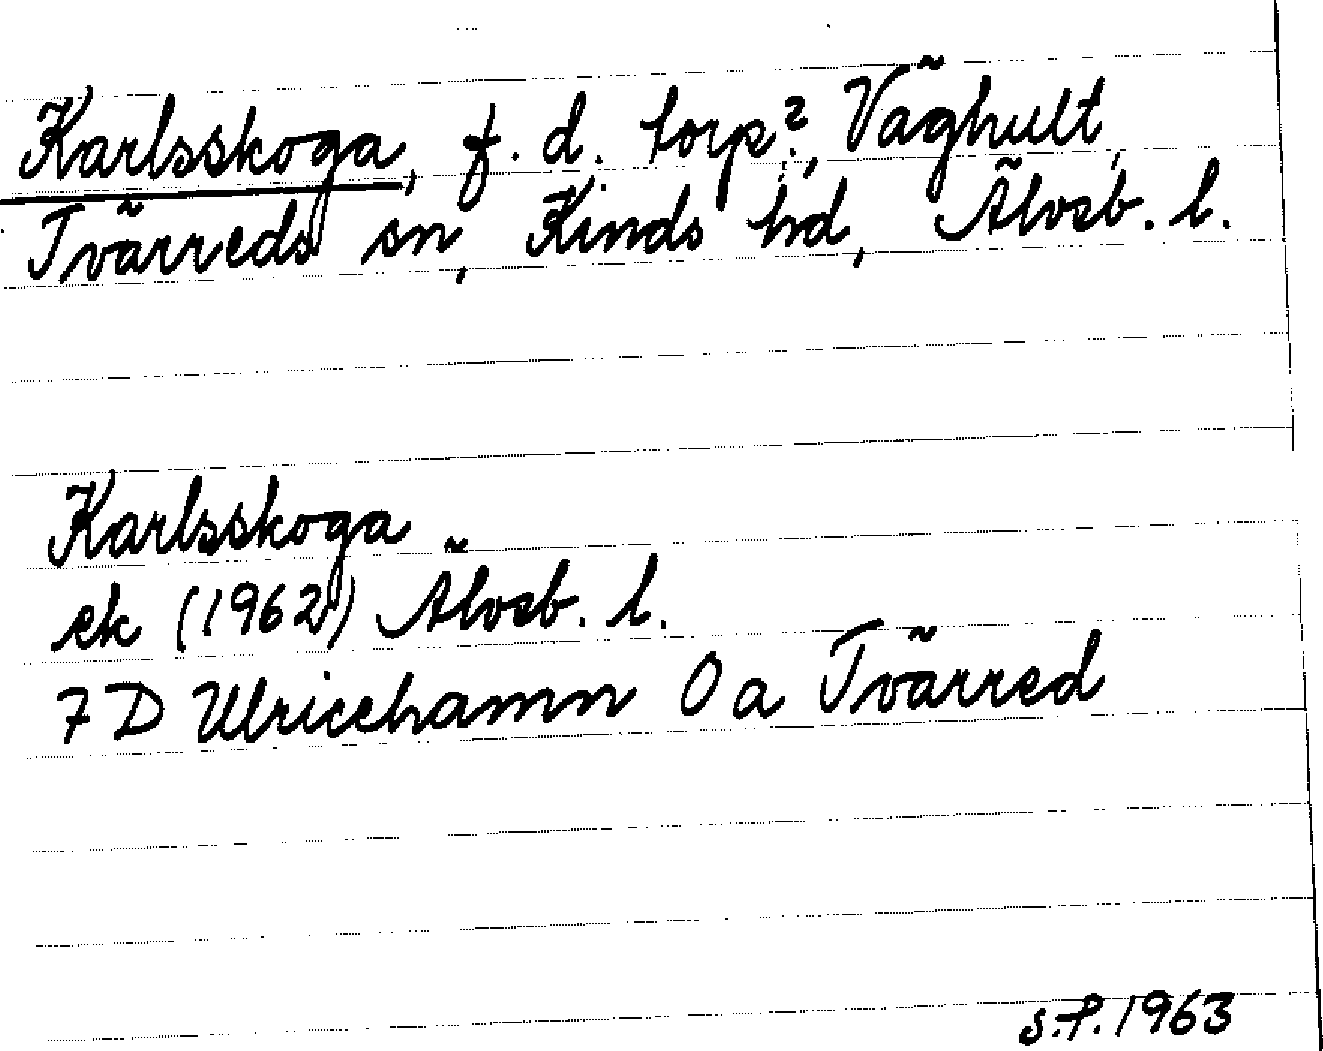 Karlsskoga, f. d. torp?, Väghult,
Tvärreds sn, Kinds hd, Älvsb. l.
Karlsskoga
ek (1962) Älvsb. l.
7 D Ulricehamn 0 a Tvärred
S.P. 1963